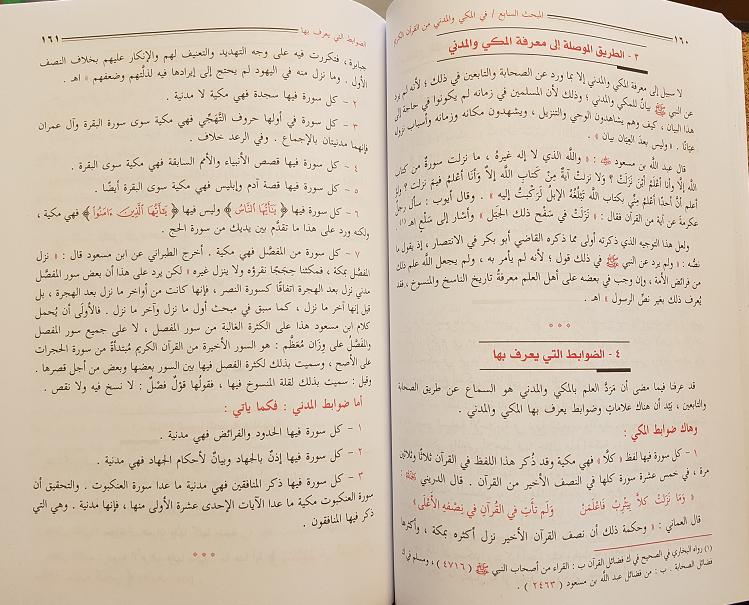 ١٦٠ المبحث السابع / في المكي والمدني من القرآن الكريم
٣ - الطريق الموصلة إلى معرفة المكي والمدني
لا سبيل إلى معرفة المكي والمدني إلا بما ورد عن الصحابة والتابعين في ذلك ؛ لأنه لم يرد
عن النبي ﷺ بيانٌ للمكي والمدني ؛ وذلك لأن المسلمين في زمانه لم يكونوا في حاجة إلى
هذا البيان ، كيف وهم يشاهدون الوحي والتنزيل ، ويشهدون مكانه وزمانه وأسباب نزوله
عِيَانًا . « وليس بعدَ العِيَان بيان » .
قال عبد الله بن مسعود : « والله الذي لا إله غيره ، ما نزلت سورةٌ من كتاب
الله إلَّا وأنا أعْلمُ أيْنَ نَزَلَتْ ؟ ولَا نزلتْ آيَةٌ مِنْ كتَابِ اللَّه إلَّا وَأنَا أعْلمُ فيمَ نزلت ؟ ولو
أعلم أنَّ أحدًا أعْلمُ مِنِّي بكتاب اللَّه تَبْلُغُهُ الإبلُ لَرَكِبتُ إليه » . وقال أيوب : سأل رجل
عكرمة عن آية من القرآن فقال : « نَزَلَتْ في سَفْحِ ذلكَ الجَبَل » وأشار إلى سَلْعٍ اهـ (١)
ولعل هذا التوجيه الذي ذكرته أولى مما ذكره القاضي أبو بكر في الانتصار ، إذ يقول ما
نصُّه : « ولم يرد عن النبي ﷺ في ذلك قول ؛ لأنه لم يأمر به ، ولم يجعل الله علم ذلك
من فرائض الأمة ، وإن وجب في بعضه على أهل العلم معرفةُ تاريخ الناسخ والمنسوخ ، فقد
يُعرف ذلك بغير نصِّ الرسول » اهـ .
* * *
٤ - الضوابط التي يعرف بها
قد عرفنا فيما مضى أن مَرَدَّ العلم بالمكي والمدني هو السماع عن طريق الصحابة
والتابعين ، بَيْدَ أن هناك علاماتٍ وضوابط يعرف بها المكي والمدني .
وهاك ضوابط المكي :
١ - كل سورة فيها لفظ « كلَّا » فهي مكية وقد ذُكر هذا اللفظ في القرآن ثلاثًا وثلاثين
مرة ، في خمس عشرة سورة كلها في النصف الأخير من القرآن . قال الدريني :
« وَمَا نَزَلَتْ كلَّا بِيَثْرِبَ فَاعْلَمَنْ وَلَم تَأتِ في القُرآنِ في نِصْفِهِ الأَعْلَى »
قال العماني : « وحكمة ذلك أن نصف القرآن الأخير نزل أكثره بمكة ، وأكثرها
(١) رواه البخاري في الصحيح في ك فضائل القرآن ب : القراء من أصحاب النبي ﷺ ( ٤٧١٦ ) ، ومسلم في ك
فضائل الصحابة . ب : من فضائل عبد اللَّه بن مسعود ( ٢٤٦٣ ) .
الضوابط التي يعرف بها ١٦١
جبابرة، فتكررت فيه على وجه التهديد والتعنيف لهم والإنكار عليهم بخلاف النصف
الأول . وما نزل منه في اليهود لم يحتج إلى إيرادها فيه لذلَّتهم وضعفهم » اهـ .
٢ - كل سورة فيها سجدة فهي مكية لا مدنية .
٣ - كل سورة في أولها حروف التَّهَجِّي فهي مكية سوى سورة البقرة وآل عمران
فإنهما مدنيتان بالإجماع . وفي الرعد خلاف .
٤ - كل سورة فيها قصص الأنبياء والأمم السابقة فهي مكية سوى البقرة .
٥ - كل سورة فيها قصة آدم وإبليس فهي مكية سوى البقرة أيضًا .
٦ - كل سورة فيها ﴿ يَٰٓأَيُّهَا ٱلنَّاسُ ﴾ وليس فيها ﴿ يَٰٓأَيُّهَا ٱلَّذِينَ ءَامَنُوا۟ ﴾ فهي مكية ،
ولكنه ورد على هذا ما تقدَّم بين يديك من سورة الحج .
٧ - كل سورة من المفصَّل فهي مكية . أخرج الطبراني عن ابن مسعود قال : « نزل
المفصَّل بمكة ، فمكثنا حِجَجًا نقرؤه ولا ينزل غيره » لكن يرد على هذا أن بعض سور المفصَّل
مدني نزل بعد الهجرة اتفاقًا كسورة النصر ، فإنها كانت من أواخر ما نزل بعد الهجرة ، بل
قيل إنها آخر ما نزل ، كما سبق في مبحث أول ما نزل وآخر ما نزل . فالأَولَى أن يُحمل
كلام ابن مسعود هذا على الكثرة الغالبة من سور المفصل ، لا على جميع سور المفصل
والمفَصَّل على وِزَان مُعَظَّم : هو السور الأخيرة من القرآن الكريم مُبتدأةً من سورة الحجرات
على الأصح ، وسميت بذلك لكثرة الفصل فيها بين السور بعضها وبعض من أجل قصرها .
وقيل : سميت بذلك لقلة المنسوخ فيها ، فقولُها قوْلٌ فَصْلٌ : لا نسخ فيه ولا نقص .
أما ضوابط المدني : فكما يأتي :
١ - كل سورة فيها الحدود والفرائض فهي مدنية .
٢ - كل سورة فيها إذنٌ بالجهاد وبيانٌ لأحكام الجهاد فهي مدنية .
٣ - كل سورة فيها ذكر المنافقين فهي مدنية ما عدا سورة العنكبوت . والتحقيق أن
سورة العنكبوت مكية ما عدا الآيات الإحدى عشرة الأولى منها ، فإنها مدنية . وهي التي
ذكر فيها المنافقون .
* * *